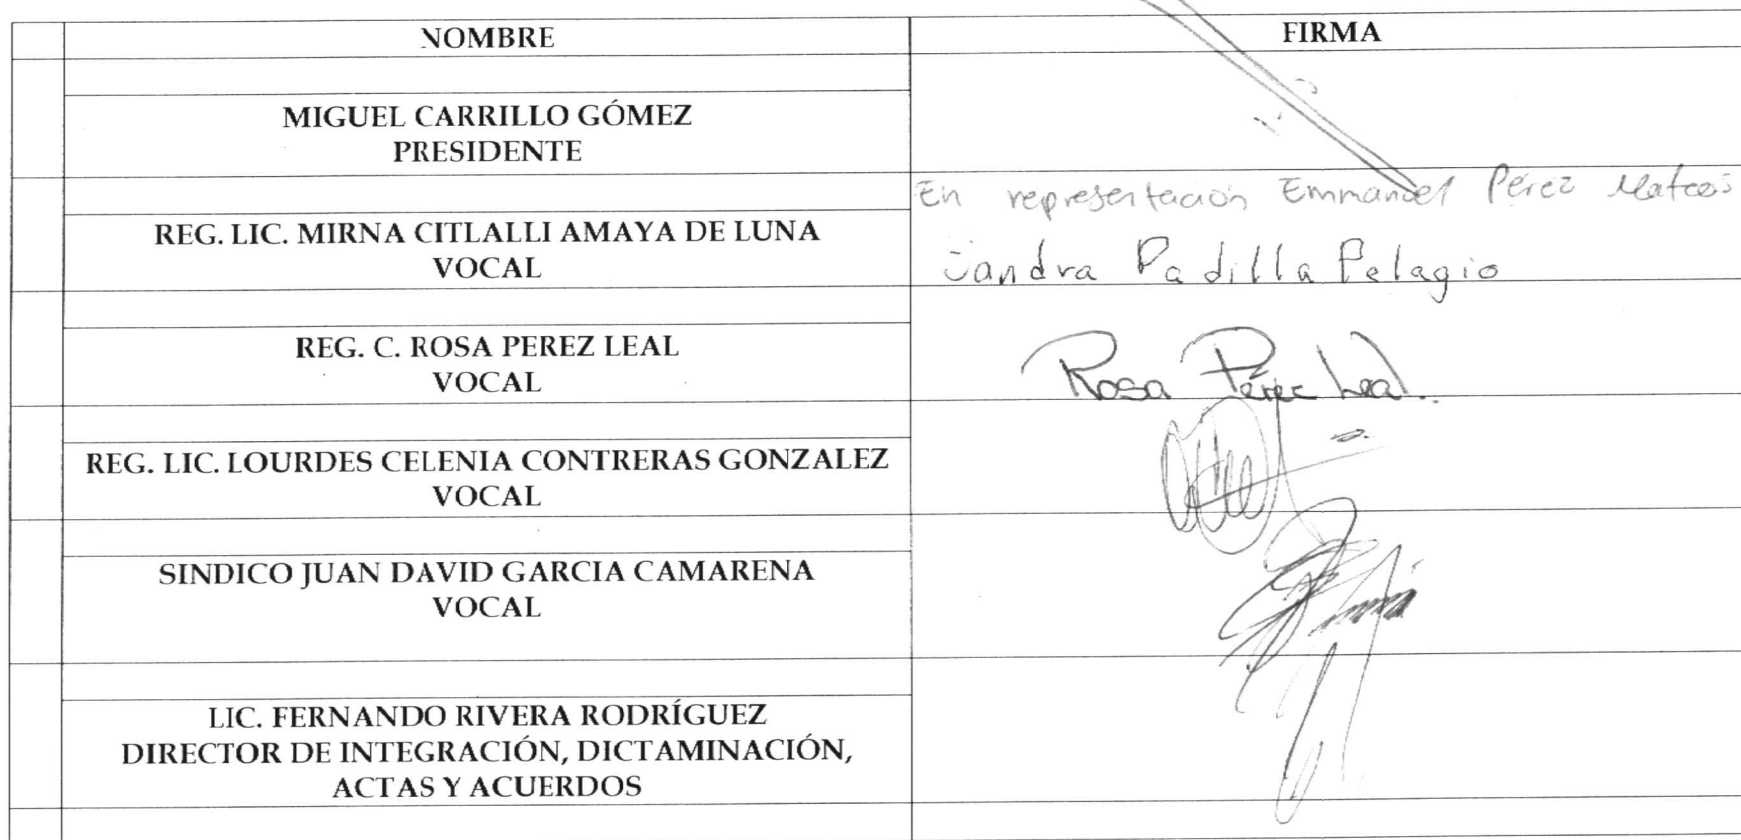 NOMBRE FIRMA
MIGUEL CARRILLO GÓMEZ
PRESIDENTE
En representación Emmanuel Pérez Mateos
REG. LIC. MIRNA CITLALLI AMAYA DE LUNA
VOCAL
Sandra Padilla Pelagio
REG. C. ROSA PEREZ LEAL
VOCAL
Rosa Pérez Leal
REG. LIC. LOURDES CELENIA CONTRERAS GONZALEZ
VOCAL
SINDICO JUAN DAVID GARCIA CAMARENA
VOCAL
LIC. FERNANDO RIVERA RODRÍGUEZ
DIRECTOR DE INTEGRACIÓN, DICTAMINACIÓN,
ACTAS Y ACUERDOS